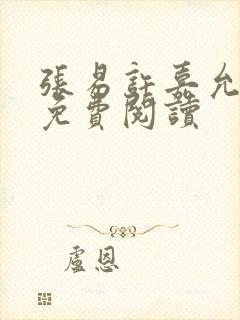 張易許嘉允
免費閱讀
盧恩